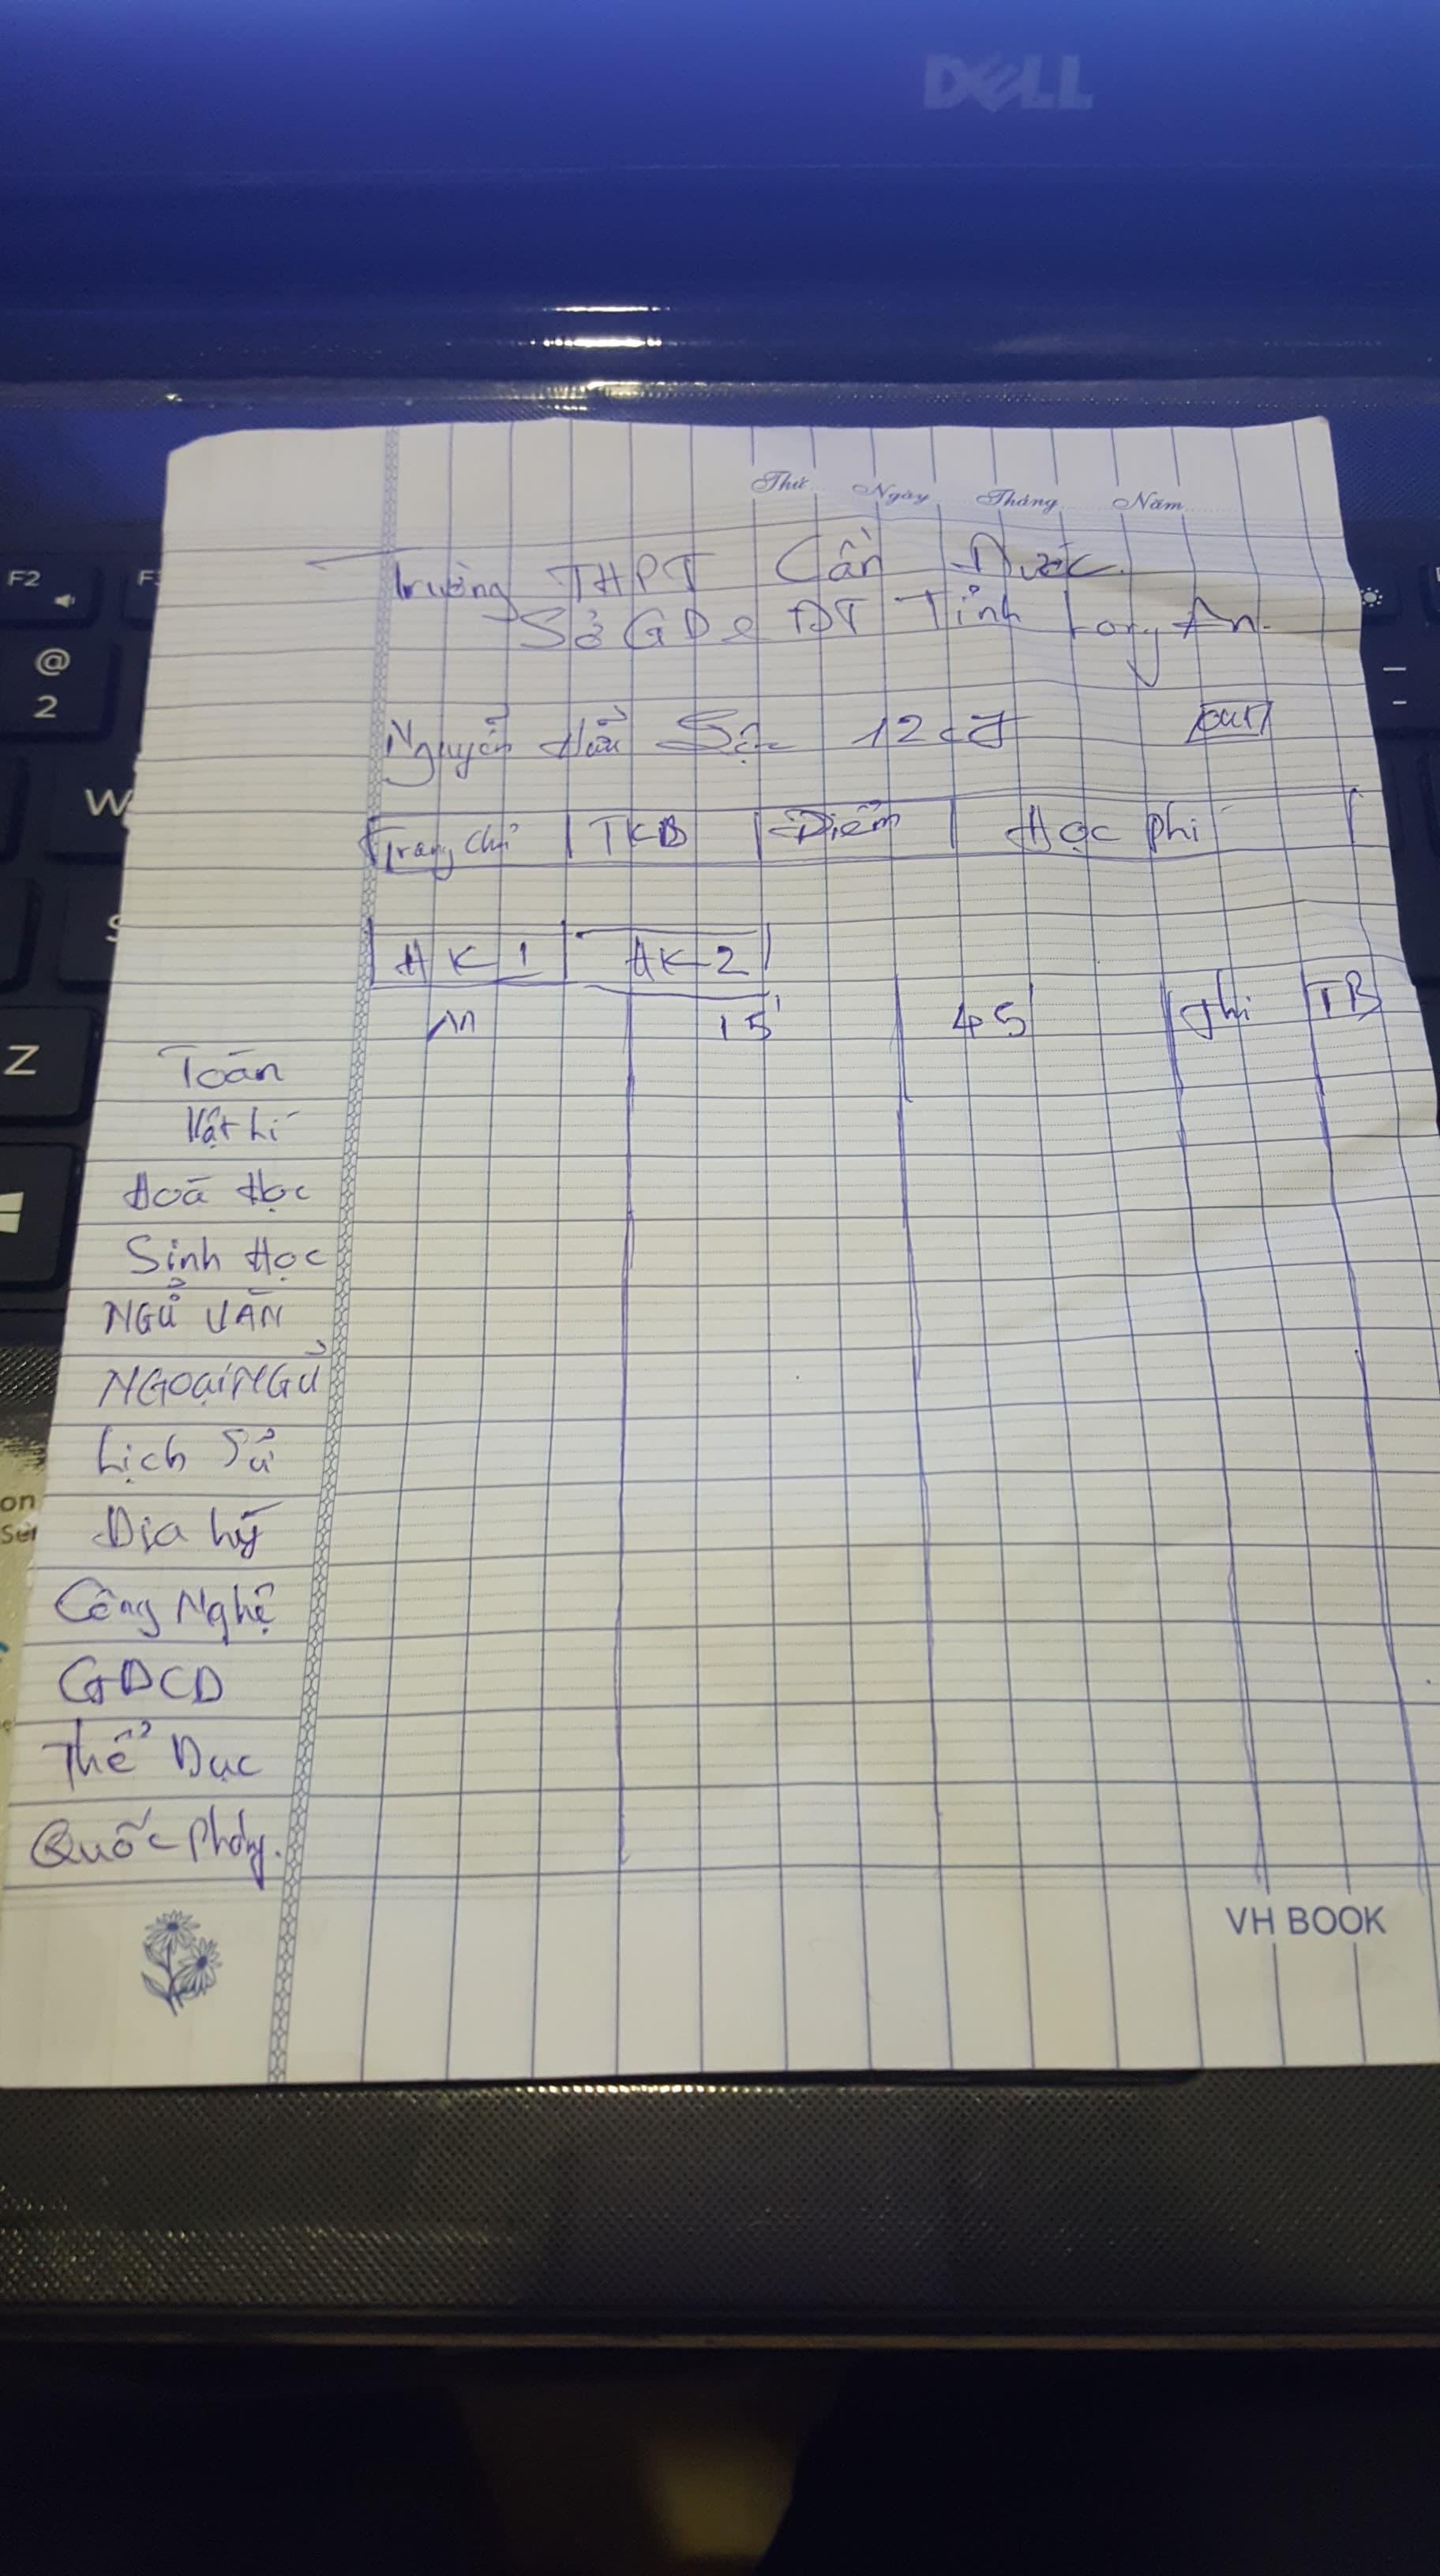 DELL
Thứ Ngày Tháng Năm
Trường THPT Cần Đước
Sở GD & ĐT Tỉnh Long An.
Nguyễn Hữu 12
Trang Chủ TKB Điểm Học Phí
HK 1 HK 2
M 15' 45' Thi TB
Toán
Vật Lí
Hoá Học
Sinh Học
NGỮ VĂN
NGOẠI NGỮ
Lịch Sử
Địa lý
Công Nghệ
GDCD
Thể Dục
Quốc Phòng.
VH BOOK
F2
@
2
W
S
Z
on